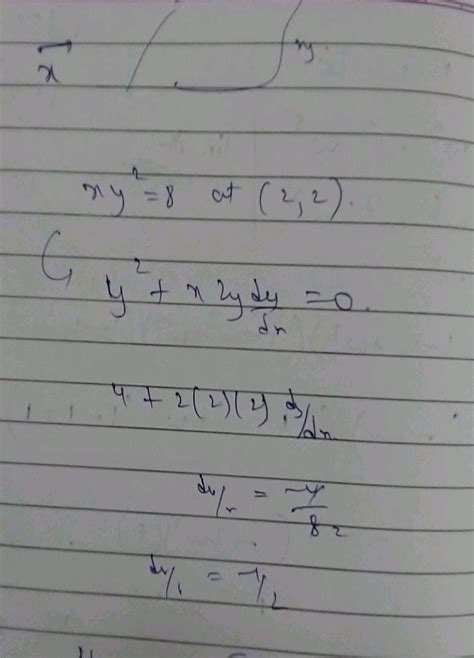 x
xy
xy² = 8 at (2,2).
y² + x 2y dy/dx = 0.
4 + 2(2)(2) dy/dx
dy/x = -4/8 2
dy/1 = -1/2